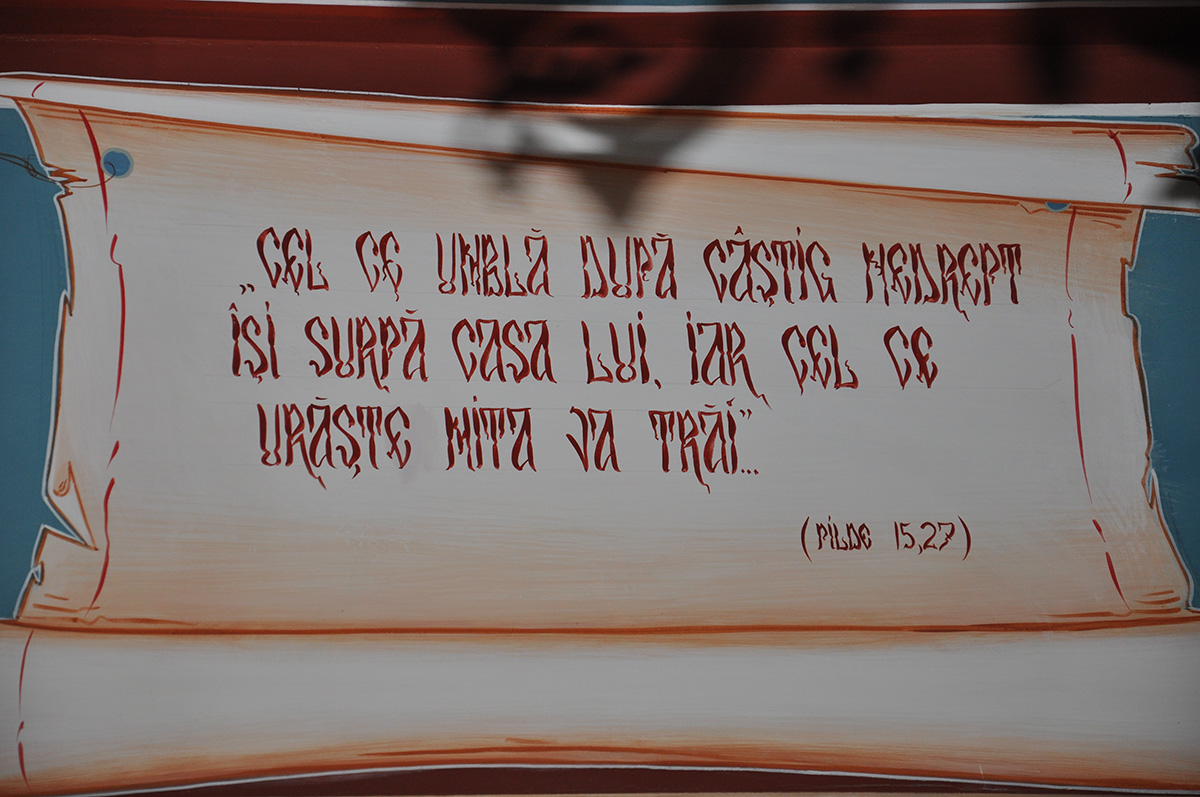 „CEL CE UMBLĂ DUPĂ CÂȘTIG NEDREPT
ÎȘI SURPĂ CASA LUI, IAR CEL CE
URĂȘTE MITA VA TRĂI”...
(PILDE 15,27)